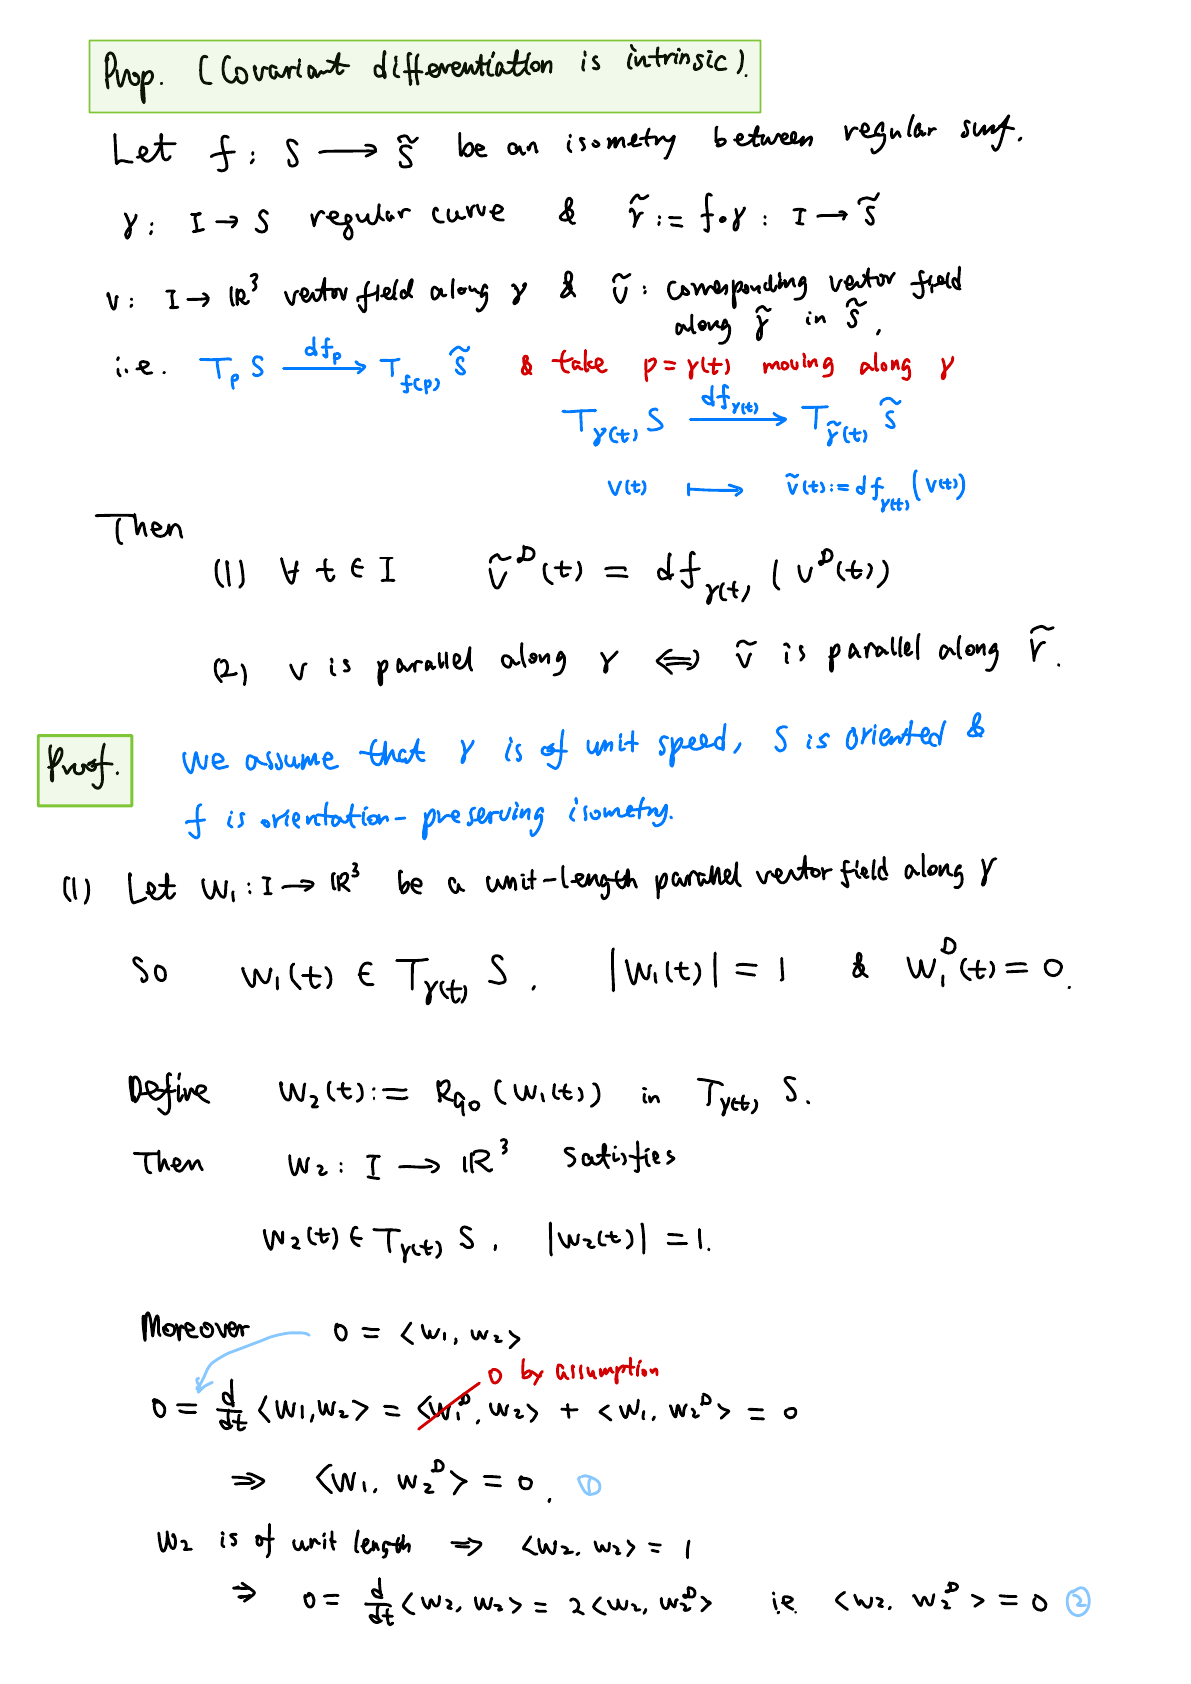 Prop. (Covariant differentiation is intrinsic).
Let f : S ⟶ S̃ be an isometry between regular surf.
γ : I → S regular curve & γ̃ := f∘γ : I → S̃
v : I → ℝ³ vector field along γ & ṽ : corresponding vector field
along γ̃ in S̃,
i.e. T_p S —df_p→ T_{f(p)} S̃ & take p = γ(t) moving along γ
T_{γ(t)} S —df_{γ(t)}→ T_{γ̃(t)} S̃
v(t) ⟼ ṽ(t) := df_{γ(t)}(v(t))
Then
(1) ∀ t ∈ I ṽ^D(t) = df_{γ(t)}(v^D(t))
(2) v is parallel along γ ⟺ ṽ is parallel along γ̃.
Proof. We assume that γ is of unit speed, S is oriented &
f is orientation-preserving isometry.
(1) Let W₁ : I → ℝ³ be a unit-length parallel vector field along γ
So W₁(t) ∈ T_{γ(t)} S, |W₁(t)| = 1 & W₁^D(t) = 0.
Define W₂(t) := R₉₀(W₁(t)) in T_{γ(t)} S.
Then W₂ : I ⟶ ℝ³ satisfies
W₂(t) ∈ T_{γ(t)} S, |W₂(t)| = 1.
Moreover 0 = <W₁, W₂>
0 by assumption
0 = d/dt <W₁, W₂> = <W₁^D, W₂> + <W₁, W₂^D> = 0
⇒ <W₁, W₂^D> = 0. ①
W₂ is of unit length ⇒ <W₂, W₂> = 1
⇒ 0 = d/dt <W₂, W₂> = 2<W₂, W₂^D> i.e. <W₂, W₂^D> = 0 ②